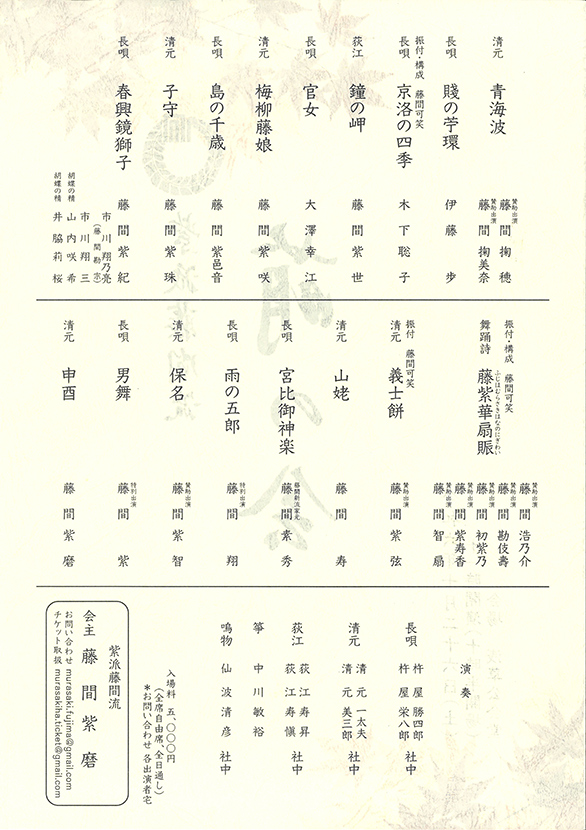 清元 青海波
賛助出演 藤間掬穂
賛助出演 藤間掬美奈
長唄 賤の苧環 伊藤歩
振付・構成 藤間可笑
長唄 京洛の四季 木下聡子
荻江 鐘の岬 藤間紫世
長唄 官女 大澤幸江
清元 梅柳藤娘 藤間紫咲
長唄 島の千歳 藤間紫邑音
清元 子守 藤間紫珠
長唄 春興鏡獅子 藤間紫紀
市川翔乃亮
(藤間勘京)
市川翔三
胡蝶の精 山内咲希
胡蝶の精 井脇莉桜
振付・構成 藤間可笑
舞踊詩 藤紫華扇賑
ふじはむらさきはなのにぎわい
賛助出演 藤間浩乃介
賛助出演 藤間勘伎壽
賛助出演 藤間初紫乃
賛助出演 藤間紫寿香
賛助出演 藤間智扇
振付 藤間可笑
清元 義士餅 賛助出演 藤間紫弦
清元 山姥 藤間寿
長唄 宮比御神楽 藤間新流家元 藤間素秀
長唄 雨の五郎 特別出演 藤間翔
清元 保名 賛助出演 藤間紫智
長唄 男舞 特別出演 藤間紫
清元 申酉 藤間紫磨
演奏
長唄 杵屋勝四郎
杵屋栄八郎 社中
清元 清元一太夫
清元美三郎 社中
荻江 荻江寿昇
荻江寿愼 社中
箏 中川敏裕
鳴物 仙波清彦 社中
入場料 五、〇〇〇円
(全席自由席、全日通し)
*お問い合わせ 各出演者宅
紫派藤間流
会主 藤間紫磨
お問い合わせ murasaki.fujima@gmail.com
チケット取扱 murasakiha.ticket@gmail.com